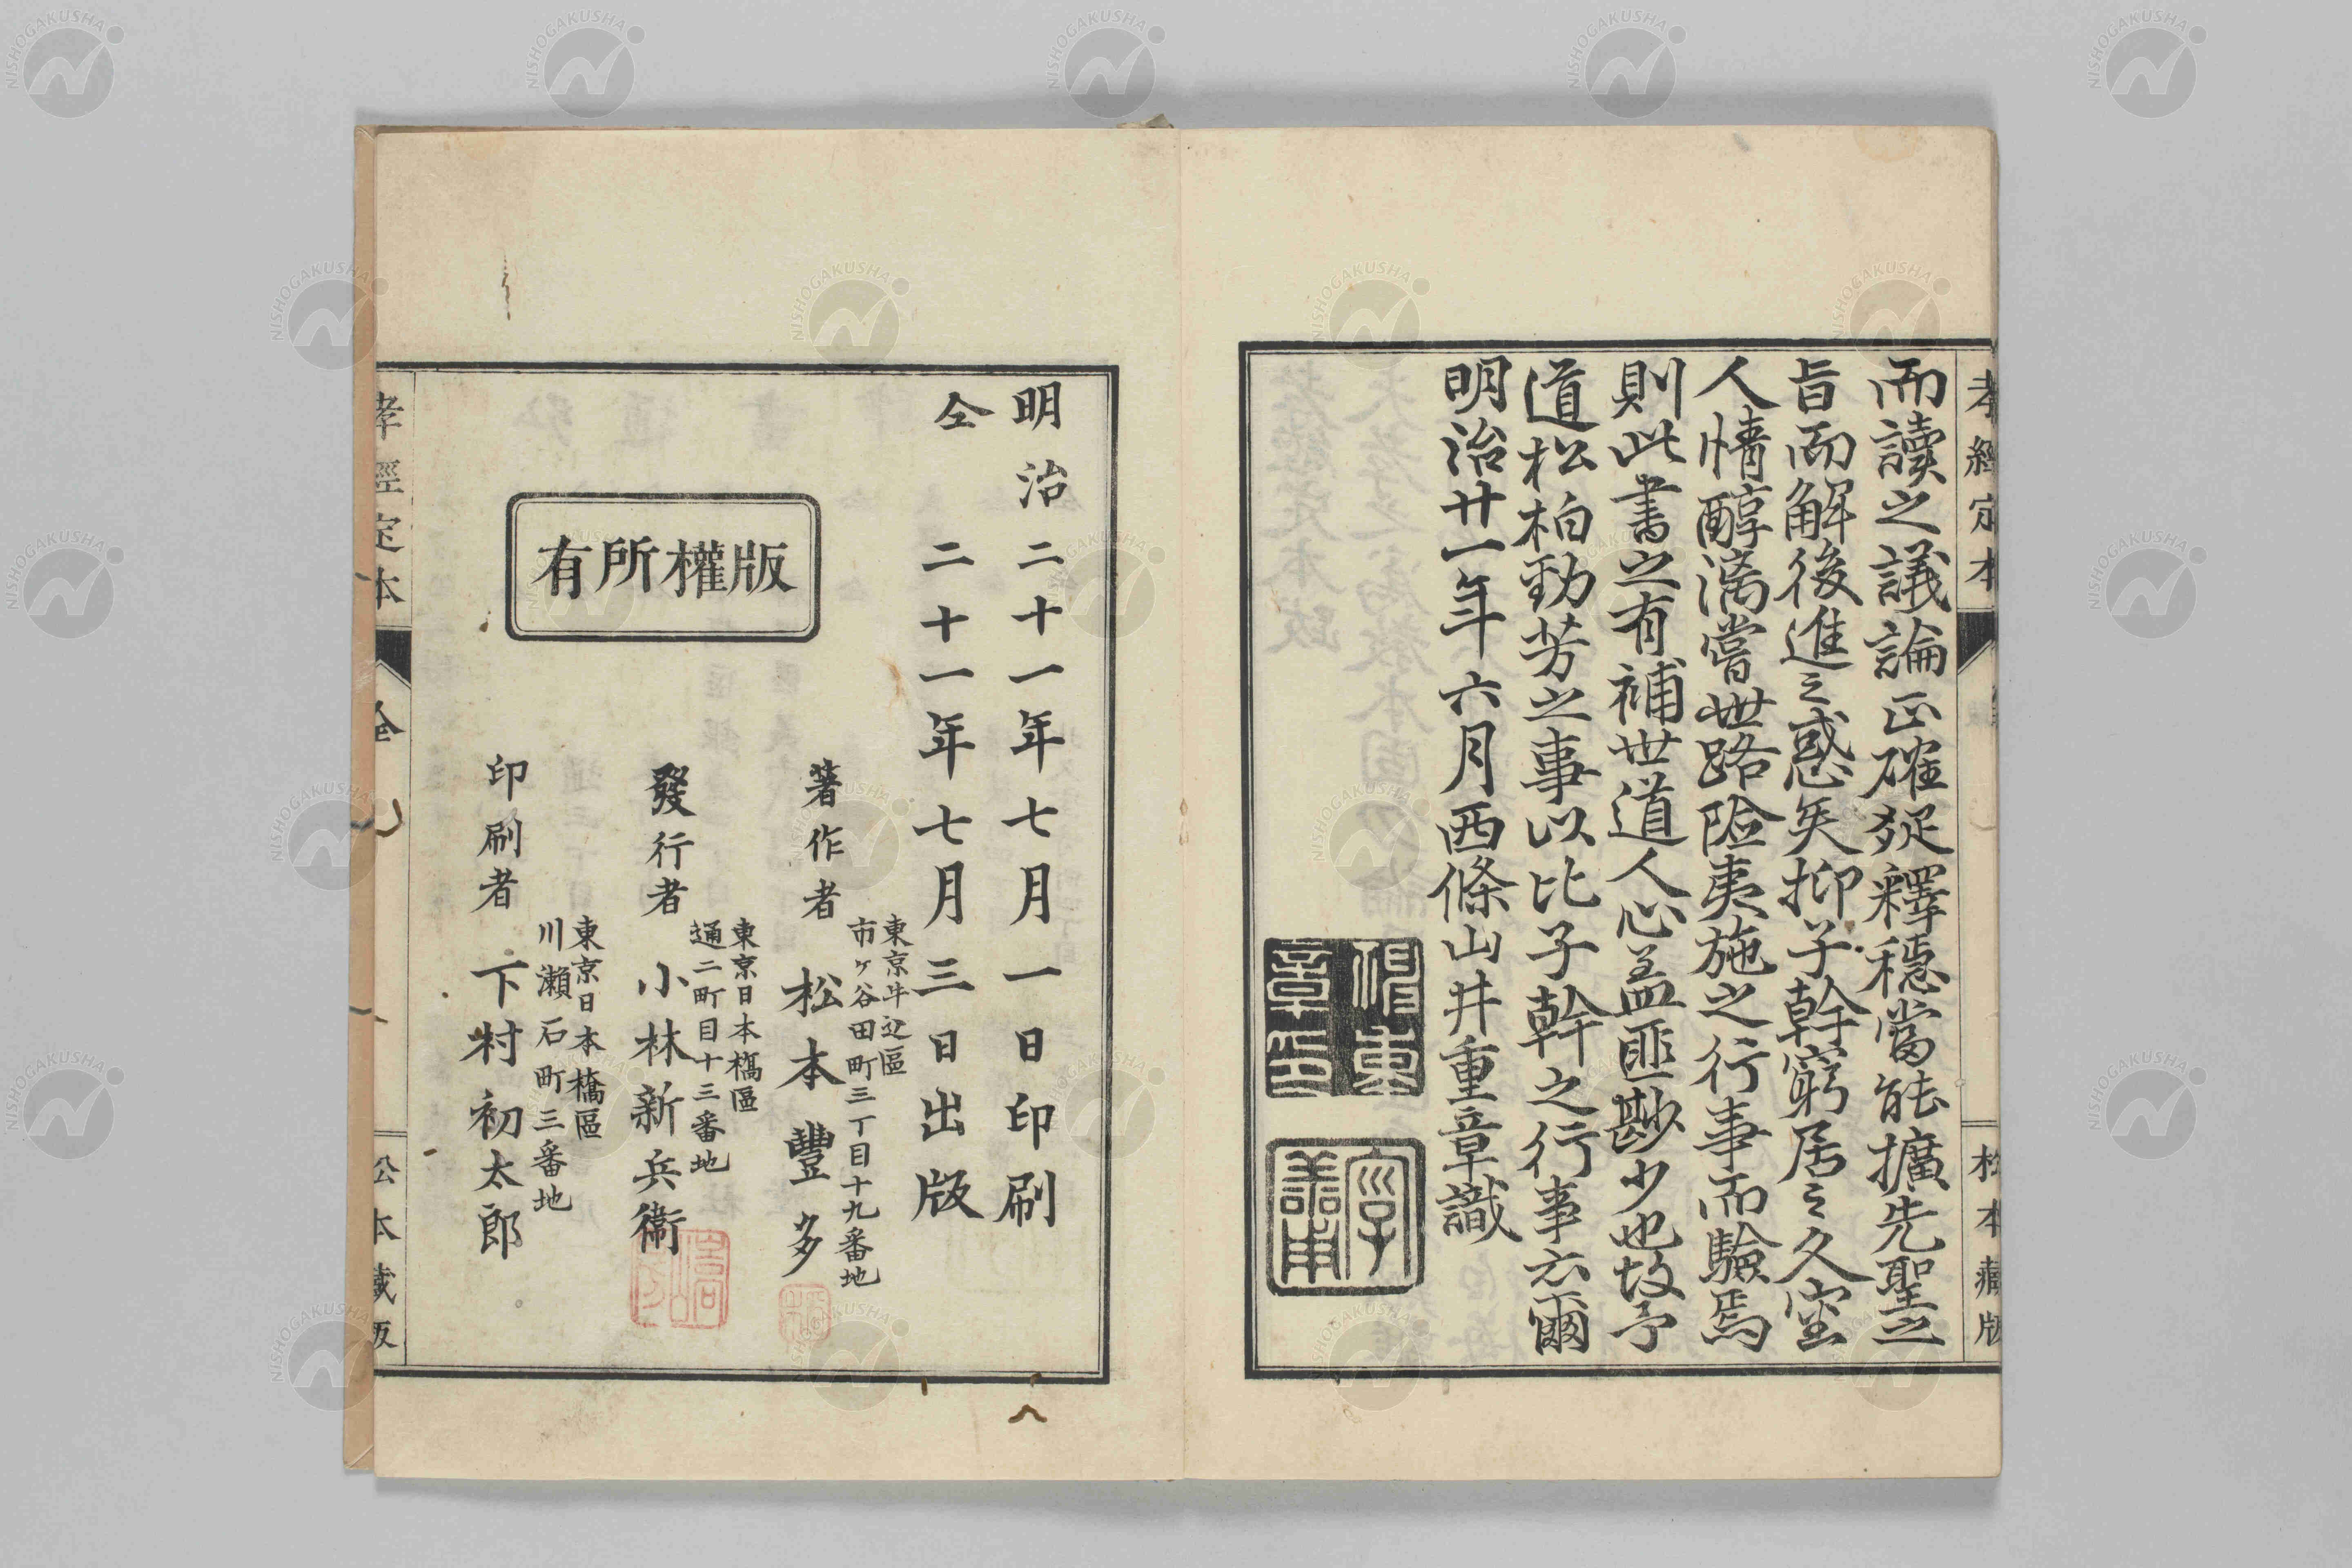 而讀之議論正確疑釋穏當能擴先聖之
旨而解後進之惑矣抑子幹窮居之久室
人情醇漓嘗世路險夷施之行事而驗焉
則此書之有補世道人心盖匪尠少也故予
道松柏勁芳之事以比子幹之行事云爾
明治廿一年六月西條山井重章識
孝經定本
松本藏版
明治二十一年七月一日印刷
仝二十一年七月三日出版
版權所有
東京牛込區
市ケ谷田町三丁目十九番地
著作者 松本豐多
東京日本橋區
通二町目十三番地
發行者 小林新兵衞
東京日本橋區
川瀬石町三番地
印刷者 下村初太郎
孝經定本
全
松本藏版
NISHOGAKUSHA